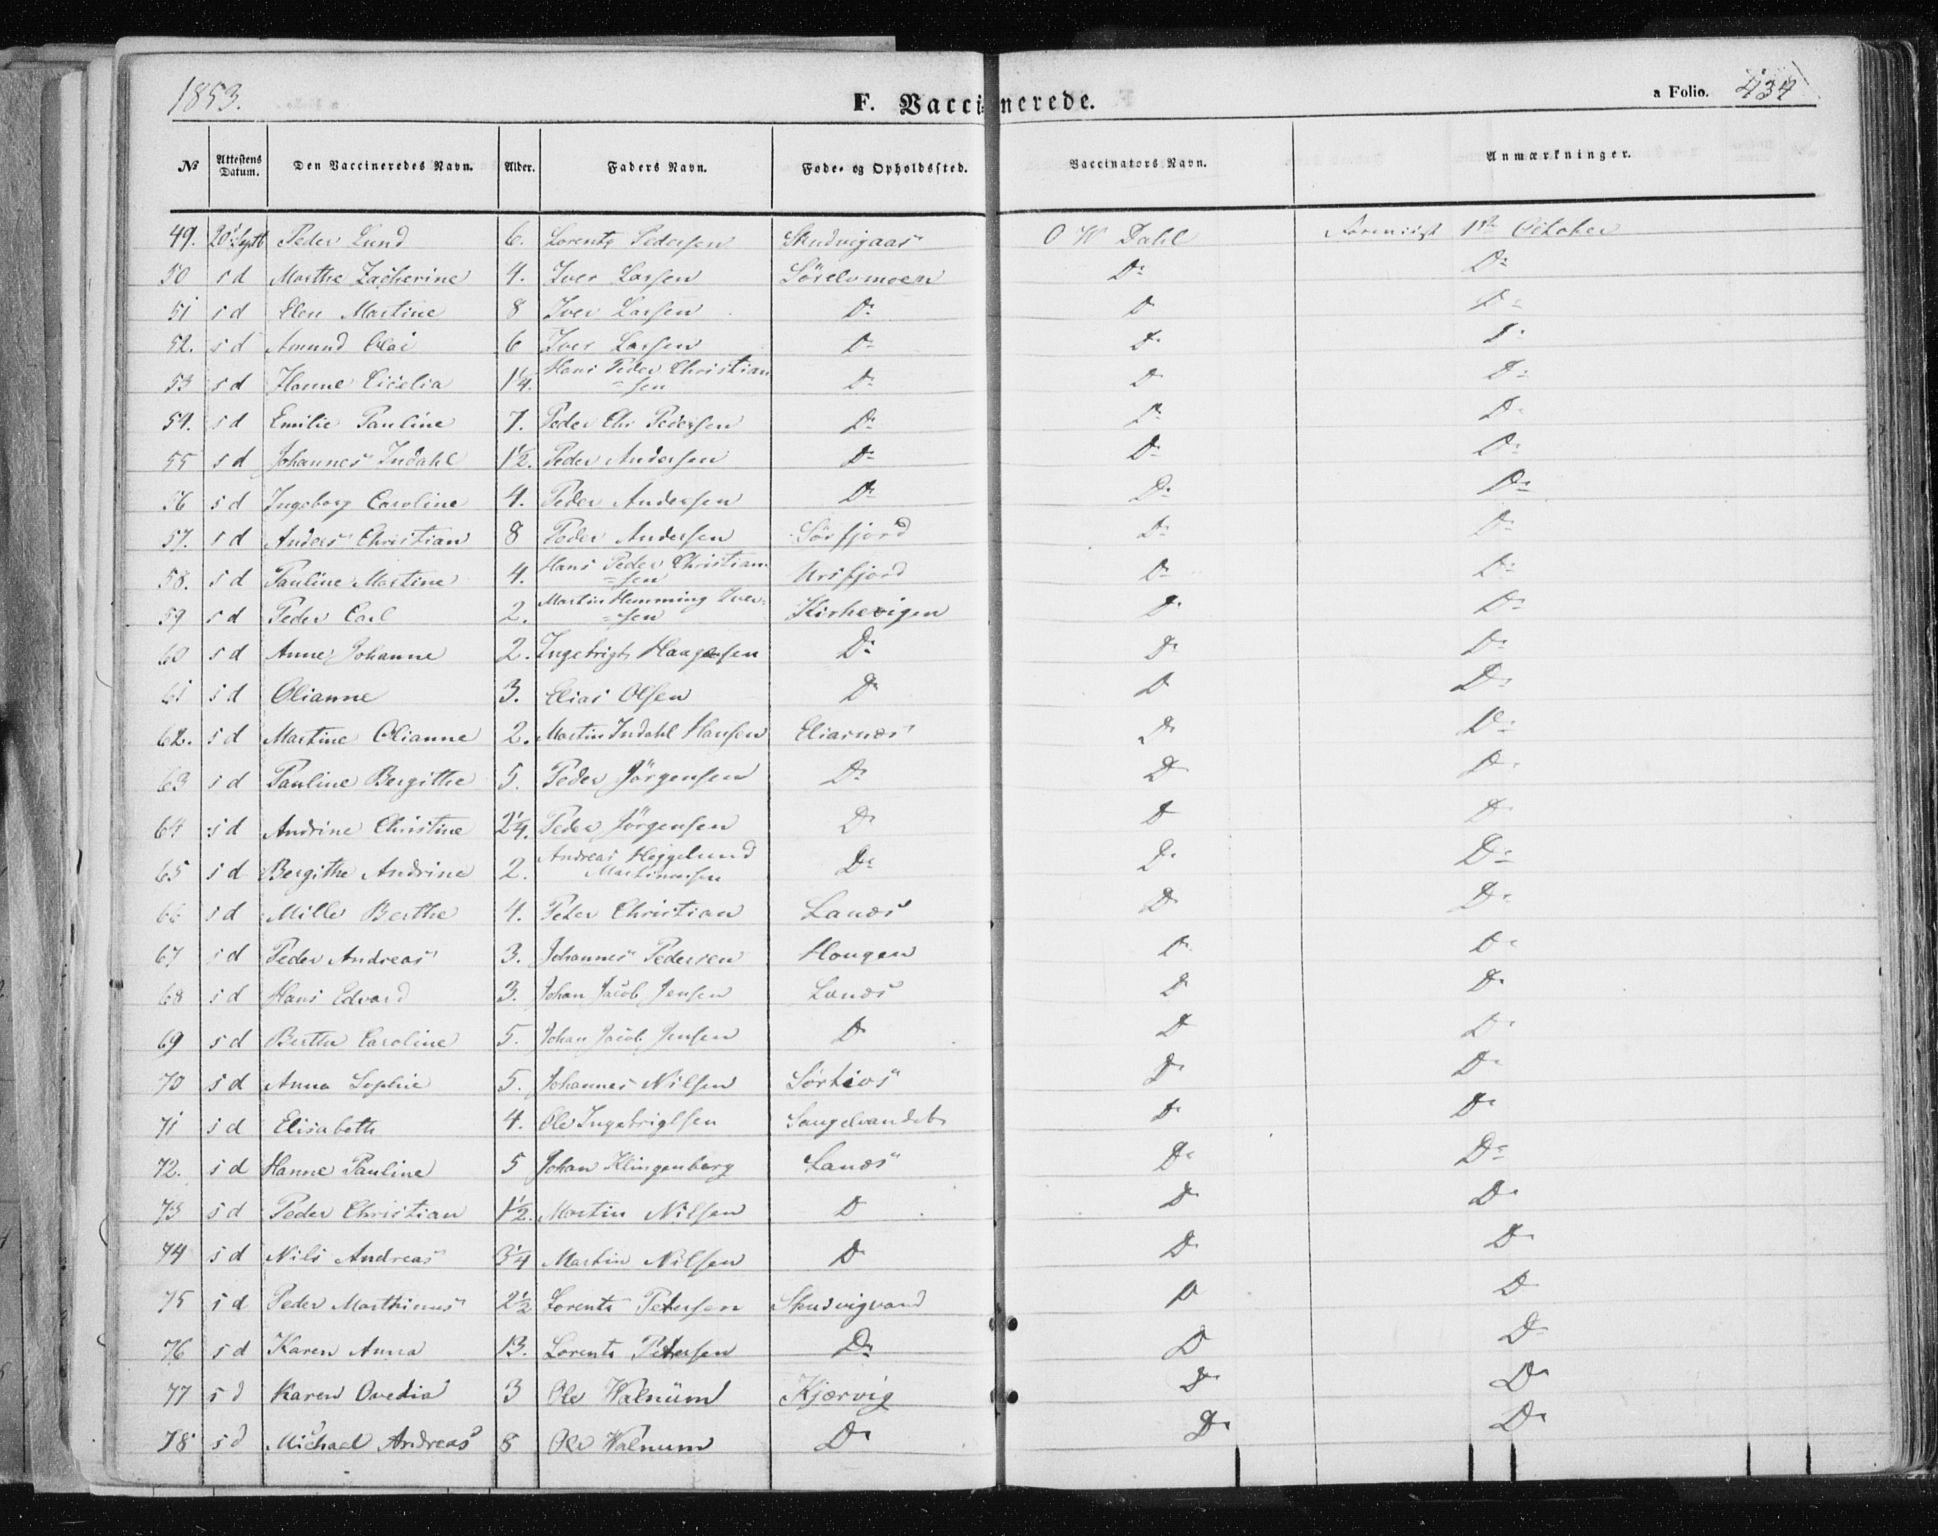 1853.
F. Vaccinerede.
a Folio. 434
№ Attestens Datum. Den Vaccineredes Navn. Alder. Faders Navn. Føde- og Opholdssted. Vaccinators Navn. Anmærkninger.
49. 20 Septb Peder Lund 6. Lorents Pedersen O W Dahl 1ste October
50 s d Marthe Zacherine 4. Iver Larsen Sörelvmoen D: D:
51 s d Elen Martine 8 Iver Larsen D: D D:
52. s d Amund Olai 6 Iver Larsen D: D: D:
53 s d Hanne Cicelia 1¼. Hans Peder Christian=sen D: D D:
54. s d Emilie Pauline 7. Peder Chr Pedersen D: D: D:
55 s d Johannes Indahl 1½. Peder Andersen D: D: D:
56 s d Ingeborg Caroline 4. Peder Andersen D: D: D:
57. s d Anders Christian 8 Peder Andersen Sörfjord D: D:
58. s d Pauline Martine 4. Hans Peder Christian=sen Ursfjord D: D:
59 s d Peder Carl 2. Martin Hemming Iver=sen Kirkevigen D: D:
60 s d Anne Johanne 2. Ingebrigt Haagensen D: D: D:
61 s d Olianne 3. Elias Olsen D: D D:
62. s d Martine Olianne 2. Martin Indahl Hansen Eliasnæs D: D:
63 s d Pauline Bergithe 5. Peder Jörgensen D: D D:
64 s d Andrine Christine 2¼. Peder Jörgensen D: D D:
65 s d Bergithe Andrine 2. Andreas Heggelund Martinussen D: D: D:
66 s d Mille Berthe 4. Peter Christian Lanæs D: D:
67 s d Peder Andreas 3. Johannes Pedersen Hougen D: D:
68 s d Hans Edvard 3. Johan Jacob Jensen Lanæs D D:
69 s d Berthe Caroline 5. Johan Jacob Jensen D D D:
70 s d Anna Sophie 5. Johannes Nilsen D: D:
71 s d Elisabeth 4. Ole Ingebrigtsen D: D:
72. s d Hanne Pauline 5 Johan Klingenberg Lanæs D: D:
73 s d Peder Christian 1½. Martin Nilsen D D: D:
74 s d Nils Andreas 3¼ Martin Nilsen D D: D:
75 s d Peder Marthinus 2½ Lorents Petersen Skudvigvand D D
76 s d Karen Anna 13. Lorents Petersen D: D D
77 s d Karen Ovedia 3 Ole Walnüm Kjærvig D: D:
78 s d Michael Andreas 8 Ole Walnum D: D: D: